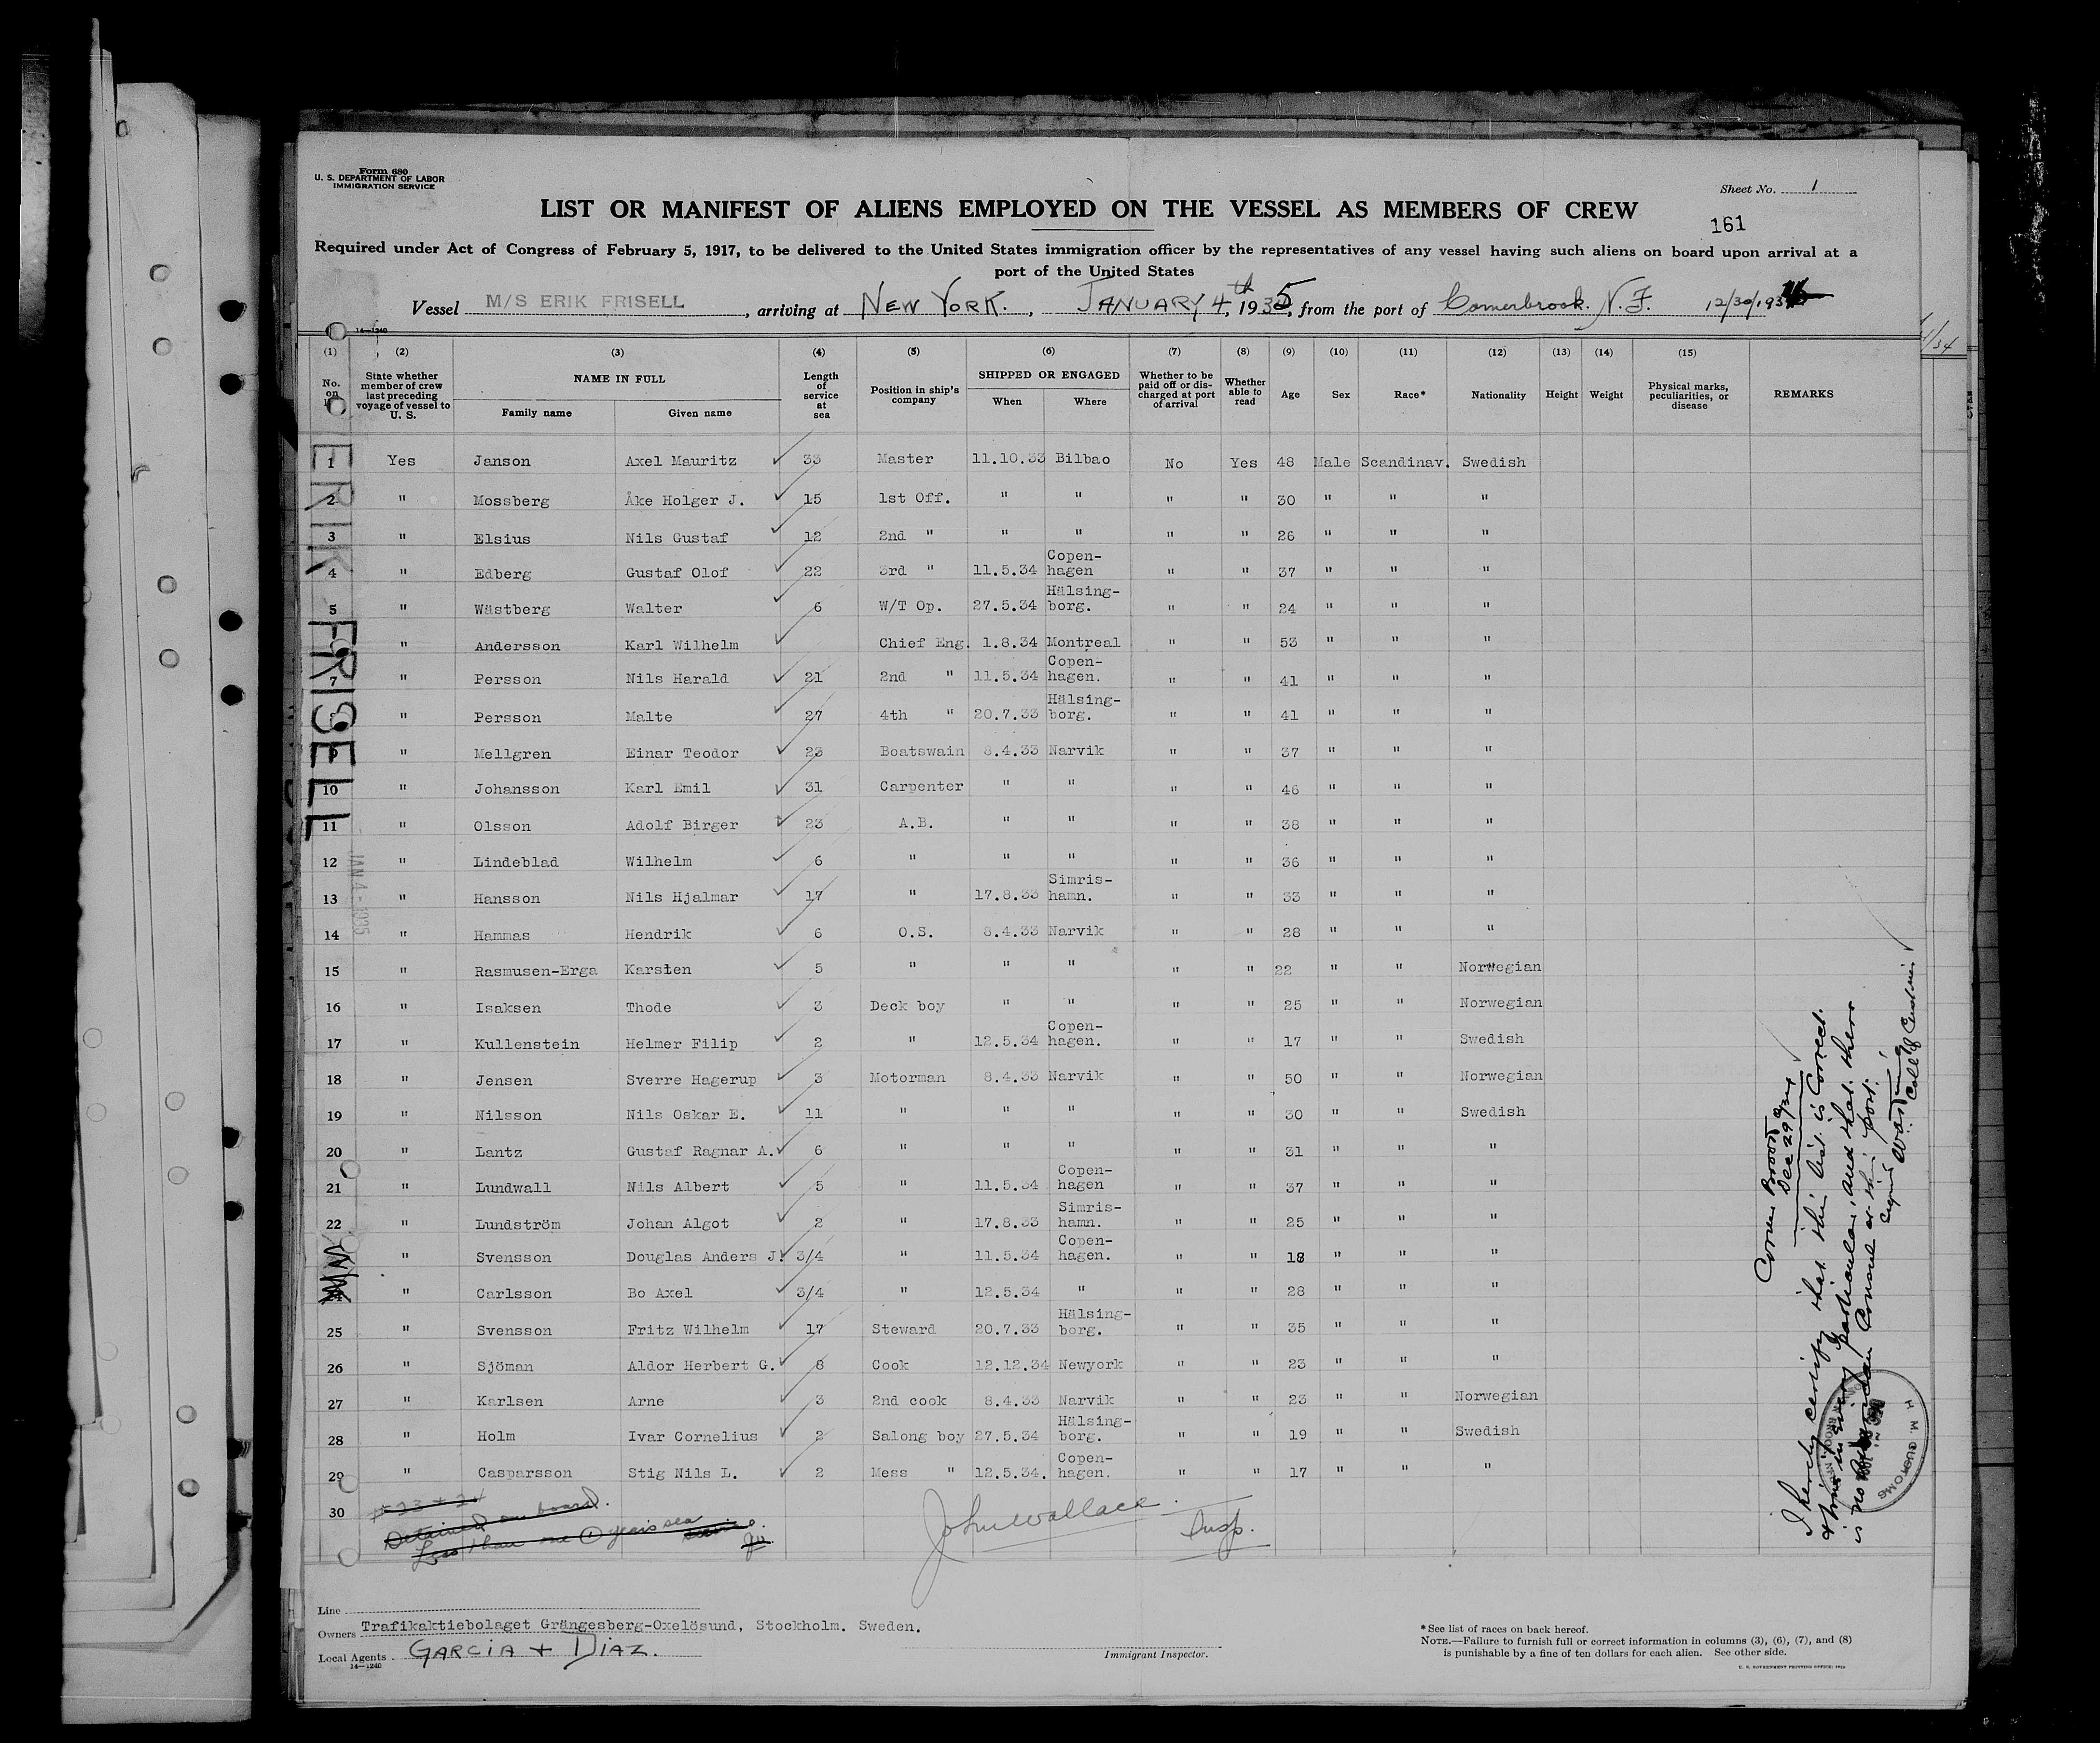 Form 680
U. S. DEPARTMENT OF LABOR
IMMIGRATION SERVICE
Sheet No. 1
LIST OR MANIFEST OF ALIENS EMPLOYED ON THE VESSEL AS MEMBERS OF CREW
161
Required under Act of Congress of February 5, 1917, to be delivered to the United States immigration officer by the representatives of any vessel having such aliens on board upon arrival at a
port of the United States
Vessel M/S ERIK FRISELL, arriving at NEW YORK., JANUARY 4th, 1935, from the port of Cornerbrook. N.F. 12/30/1934
14—1240
(1) (2) (3) (4) (5) (6) (7) (8) (9) (10) (11) (12) (13) (14) (15)
No. on State whether member of crew last preceding voyage of vessel to U. S. NAME IN FULL Family name Given name Length of service at sea Position in ship's company SHIPPED OR ENGAGED When Where Whether to be paid off or discharged at port of arrival Whether able to read Age Sex Race* Nationality Height Weight Physical marks, peculiarities, or disease REMARKS
ERIK FRISELL
JAN 4 - 1935
1 Yes Janson Axel Mauritz ✓ 33 Master 11.10.33 Bilbao No Yes 48 Male Scandinav. Swedish
2 " Mossberg Åke Holger J. ✓ 15 1st Off. " " " " 30 " " "
3 " Elsius Nils Gustaf ✓ 12 2nd " " " " " 26 " " "
4 " Edberg Gustaf Olof ✓ 22 3rd " 11.5.34 Copen-hagen " " 37 " " "
5 " Wästberg Walter ✓ 6 W/T Op. 27.5.34 Hälsing-borg. " " 24 " " "
" Andersson Karl Wilhelm ✓ Chief Eng. 1.8.34 Montreal " " 53 " " "
7 " Persson Nils Harald ✓ 21 2nd " 11.5.34 Copen-hagen. " " 41 " " "
" Persson Malte ✓ 27 4th " 20.7.33 Hälsing-borg. " " 41 " " "
9 " Mellgren Einar Teodor ✓ 23 Boatswain 8.4.33 Narvik " " 37 " " "
10 " Johansson Karl Emil ✓ 31 Carpenter " " " " 46 " " "
11 " Olsson Adolf Birger ✓ 23 A.B. " " " " 38 " " "
12 " Lindeblad Wilhelm ✓ 6 " " " " " 36 " " "
13 " Hansson Nils Hjalmar ✓ 17 " 17.8.33 Simris-hamn. " " 33 " " "
14 " Hammas Hendrik ✓ 6 O.S. 8.4.33 Narvik " " 28 " " "
15 " Rasmusen-Erga Karsten ✓ 5 " " " " " 22 " " Norwegian
16 " Isaksen Thode ✓ 3 Deck boy " " " " 25 " " Norwegian
17 " Kullenstein Helmer Filip ✓ 2 " 12.5.34 Copen-hagen. " " 17 " " Swedish
18 " Jensen Sverre Hagerup ✓ 3 Motorman 8.4.33 Narvik " " 50 " " Norwegian
19 " Nilsson Nils Oskar E. ✓ 11 " " " " " 30 " " Swedish
20 " Lantz Gustaf Ragnar A. ✓ 6 " " " " " 31 " " "
21 " Lundwall Nils Albert ✓ 5 " 11.5.34 Copen-hagen " " 37 " " "
22 " Lundström Johan Algot ✓ 2 " 17.8.33 Simris-hamn. " " 25 " " "
" Svensson Douglas Anders J. ✓ 3/4 " 11.5.34 Copen-hagen. " " 18 " " "
" Carlsson Bo Axel ✓ 3/4 " 12.5.34 " " " 28 " " "
25 " Svensson Fritz Wilhelm ✓ 17 Steward 20.7.33 Hälsing-borg. " " 35 " " "
26 " Sjöman Aldor Herbert G. ✓ 8 Cook 12.12.34 Newyork " " 23 " " "
27 " Karlsen Arne ✓ 3 2nd cook 8.4.33 Narvik " " 23 " " Norwegian
28 " Holm Ivar Cornelius ✓ 2 Salong boy 27.5.34 Hälsing-borg. " " 19 " " Swedish
29 " Casparsson Stig Nils L. ✓ 2 Mess " 12.5.34. Copen-hagen. " " 17 " " "
30
# 23 + 24
Detained on board.
Less than one (1) years sea service.
John Wallace. Insp.
Corner Brook
Dec 29/34
I hereby certify that this list is Correct.
& true in every particular, and that there
is no American Consul at this port.
Signed
Coll of Customs
H. M. CUSTOMS
Line
Owners Trafikaktiebolaget Grängesberg-Oxelösund, Stockholm. Sweden.
Local Agents. GARCIA + DIAZ.
14—1240
Immigrant Inspector.
*See list of races on back hereof.
NOTE.—Failure to furnish full or correct information in columns (3), (6), (7), and (8)
is punishable by a fine of ten dollars for each alien. See other side.